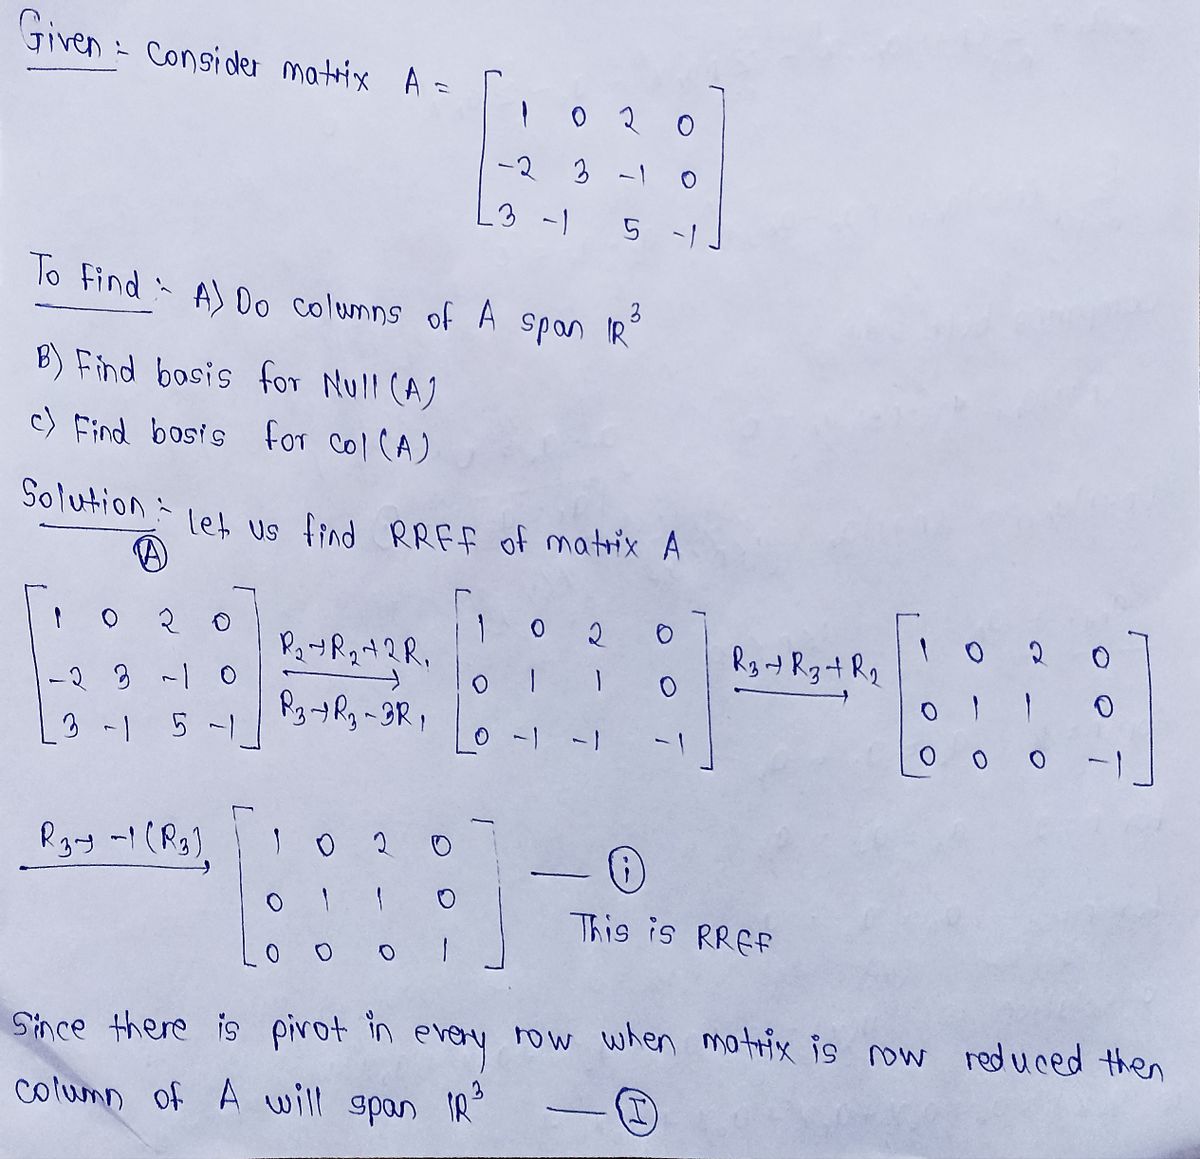 Given :- Consider matrix A =
1 0 2 0
-2 3 -1 0
3 -1 5 -1
To Find :- A) Do columns of A span IR³
B) Find basis for Null (A)
C) Find basis for col (A)
Solution :- Let us find RREF of matrix A
A
1 0 2 0
-2 3 -1 0
3 -1 5 -1
R₂→R₂+2R₁
R₃→R₃-3R₁
1 0 2 0
0 1 1 0
0 -1 -1 -1
R₃→R₃+R₂
1 0 2 0
0 1 1 0
0 0 0 -1
R₃→ -1(R₃)
1 0 2 0
0 1 1 0
0 0 0 1
— i
This is RREF
Since there is pivot in every row when matrix is row reduced then
column of A will span IR³ — I